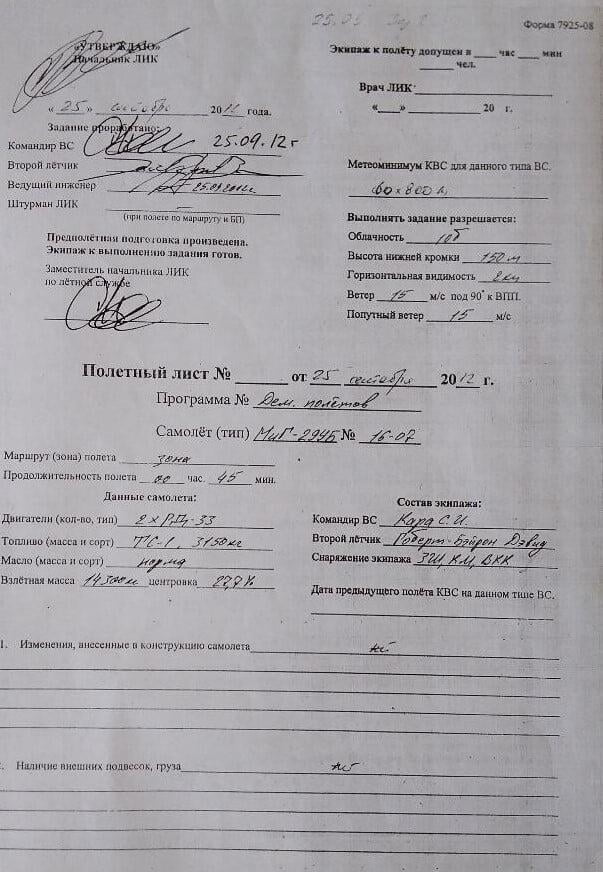 25.09
Форма 7925-08
«УТВЕРЖДАЮ»
Начальник ЛИК
«25» сентября 2012 года.
Задание проработано:
Командир ВС 25.09.12г
Второй лётчик
Ведущий инженер 25.09.2012г
Штурман ЛИК —
(при полете по маршруту и БП)
Предполётная подготовка произведена.
Экипаж к выполнению задания готов.
Заместитель начальника ЛИК
по лётной службе
Экипаж к полёту допущен в ____ час ____ мин
____ чел.
Врач ЛИК
«___» ____ 20 г.
Метеоминимум КВС для данного типа ВС.
60x800м
Выполнять задание разрешается:
Облачность 10б
Высота нижней кромки 150 м
Горизонтальная видимость 2км
Ветер 15 м/с под 90˚ к ВПП.
Попутный ветер 15 м/с
Полетный лист № ____ от 25 сентября 2012 г.
Программа № Дем. полётов
Самолёт (тип) МиГ-29УБ № 16-07
Маршрут (зона) полета зона
Продолжительность полета 00 час. 45 мин.
Данные самолета:
Двигатели (кол-во, тип) 2 x РД-33
Топливо (масса и сорт) ТС-1, 3150кг
Масло (масса и сорт) норма
Взлётная масса 14300кг центровка 27,7%
Состав экипажа:
Командир ВС Кара С.И.
Второй лётчик Роберт-Бэйрон Дэвид
Снаряжение экипажа ЗШ, КМ, ВКК
Дата предыдущего полёта КВС на данном типе ВС.
1. Изменения, внесенные в конструкцию самолета нет
2. Наличие внешних подвесок, груза нет